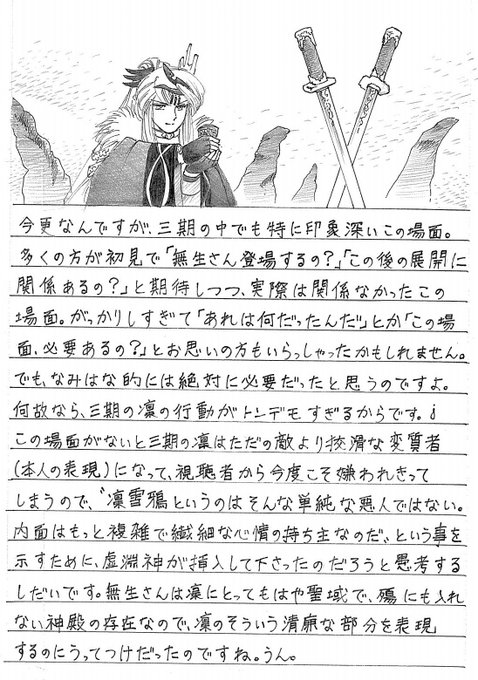 今更なんですが、三期の中でも特に印象深いこの場面。
多くの方が初見で「無生さん登場するの?」「この後の展開に
関係あるの?」と期待しつつ、実際は関係なかったこの
場面。がっかりしすぎて「あれは何だったんだ」とか「この場
面、必要あるの?」とお思いの方もいらっしゃったかもしれません。
でも、なみはな的には絶対に必要だったと思うのですよ。
何故なら、三期の凛の行動がトンデモすぎるからです。
この場面がないと三期の凛はただの敵より狡滑な変質者
(本人の表現)になって、視聴者から今度こそ嫌われきって
しまうので、〝凛雪鴉というのはそんな単純な悪人ではない。
内面はもっと複雑で繊細な心情の持ち主なのだ〟という事を
示すために、虚淵神が挿入して下さったのだろうと思考する
しだいです。無生さんは凛にとってもはや聖域で、殤にも入れ
ない神殿の存在なので、凛のそういう清廉な部分を表現
するのにうってつけだったのですね。うん。